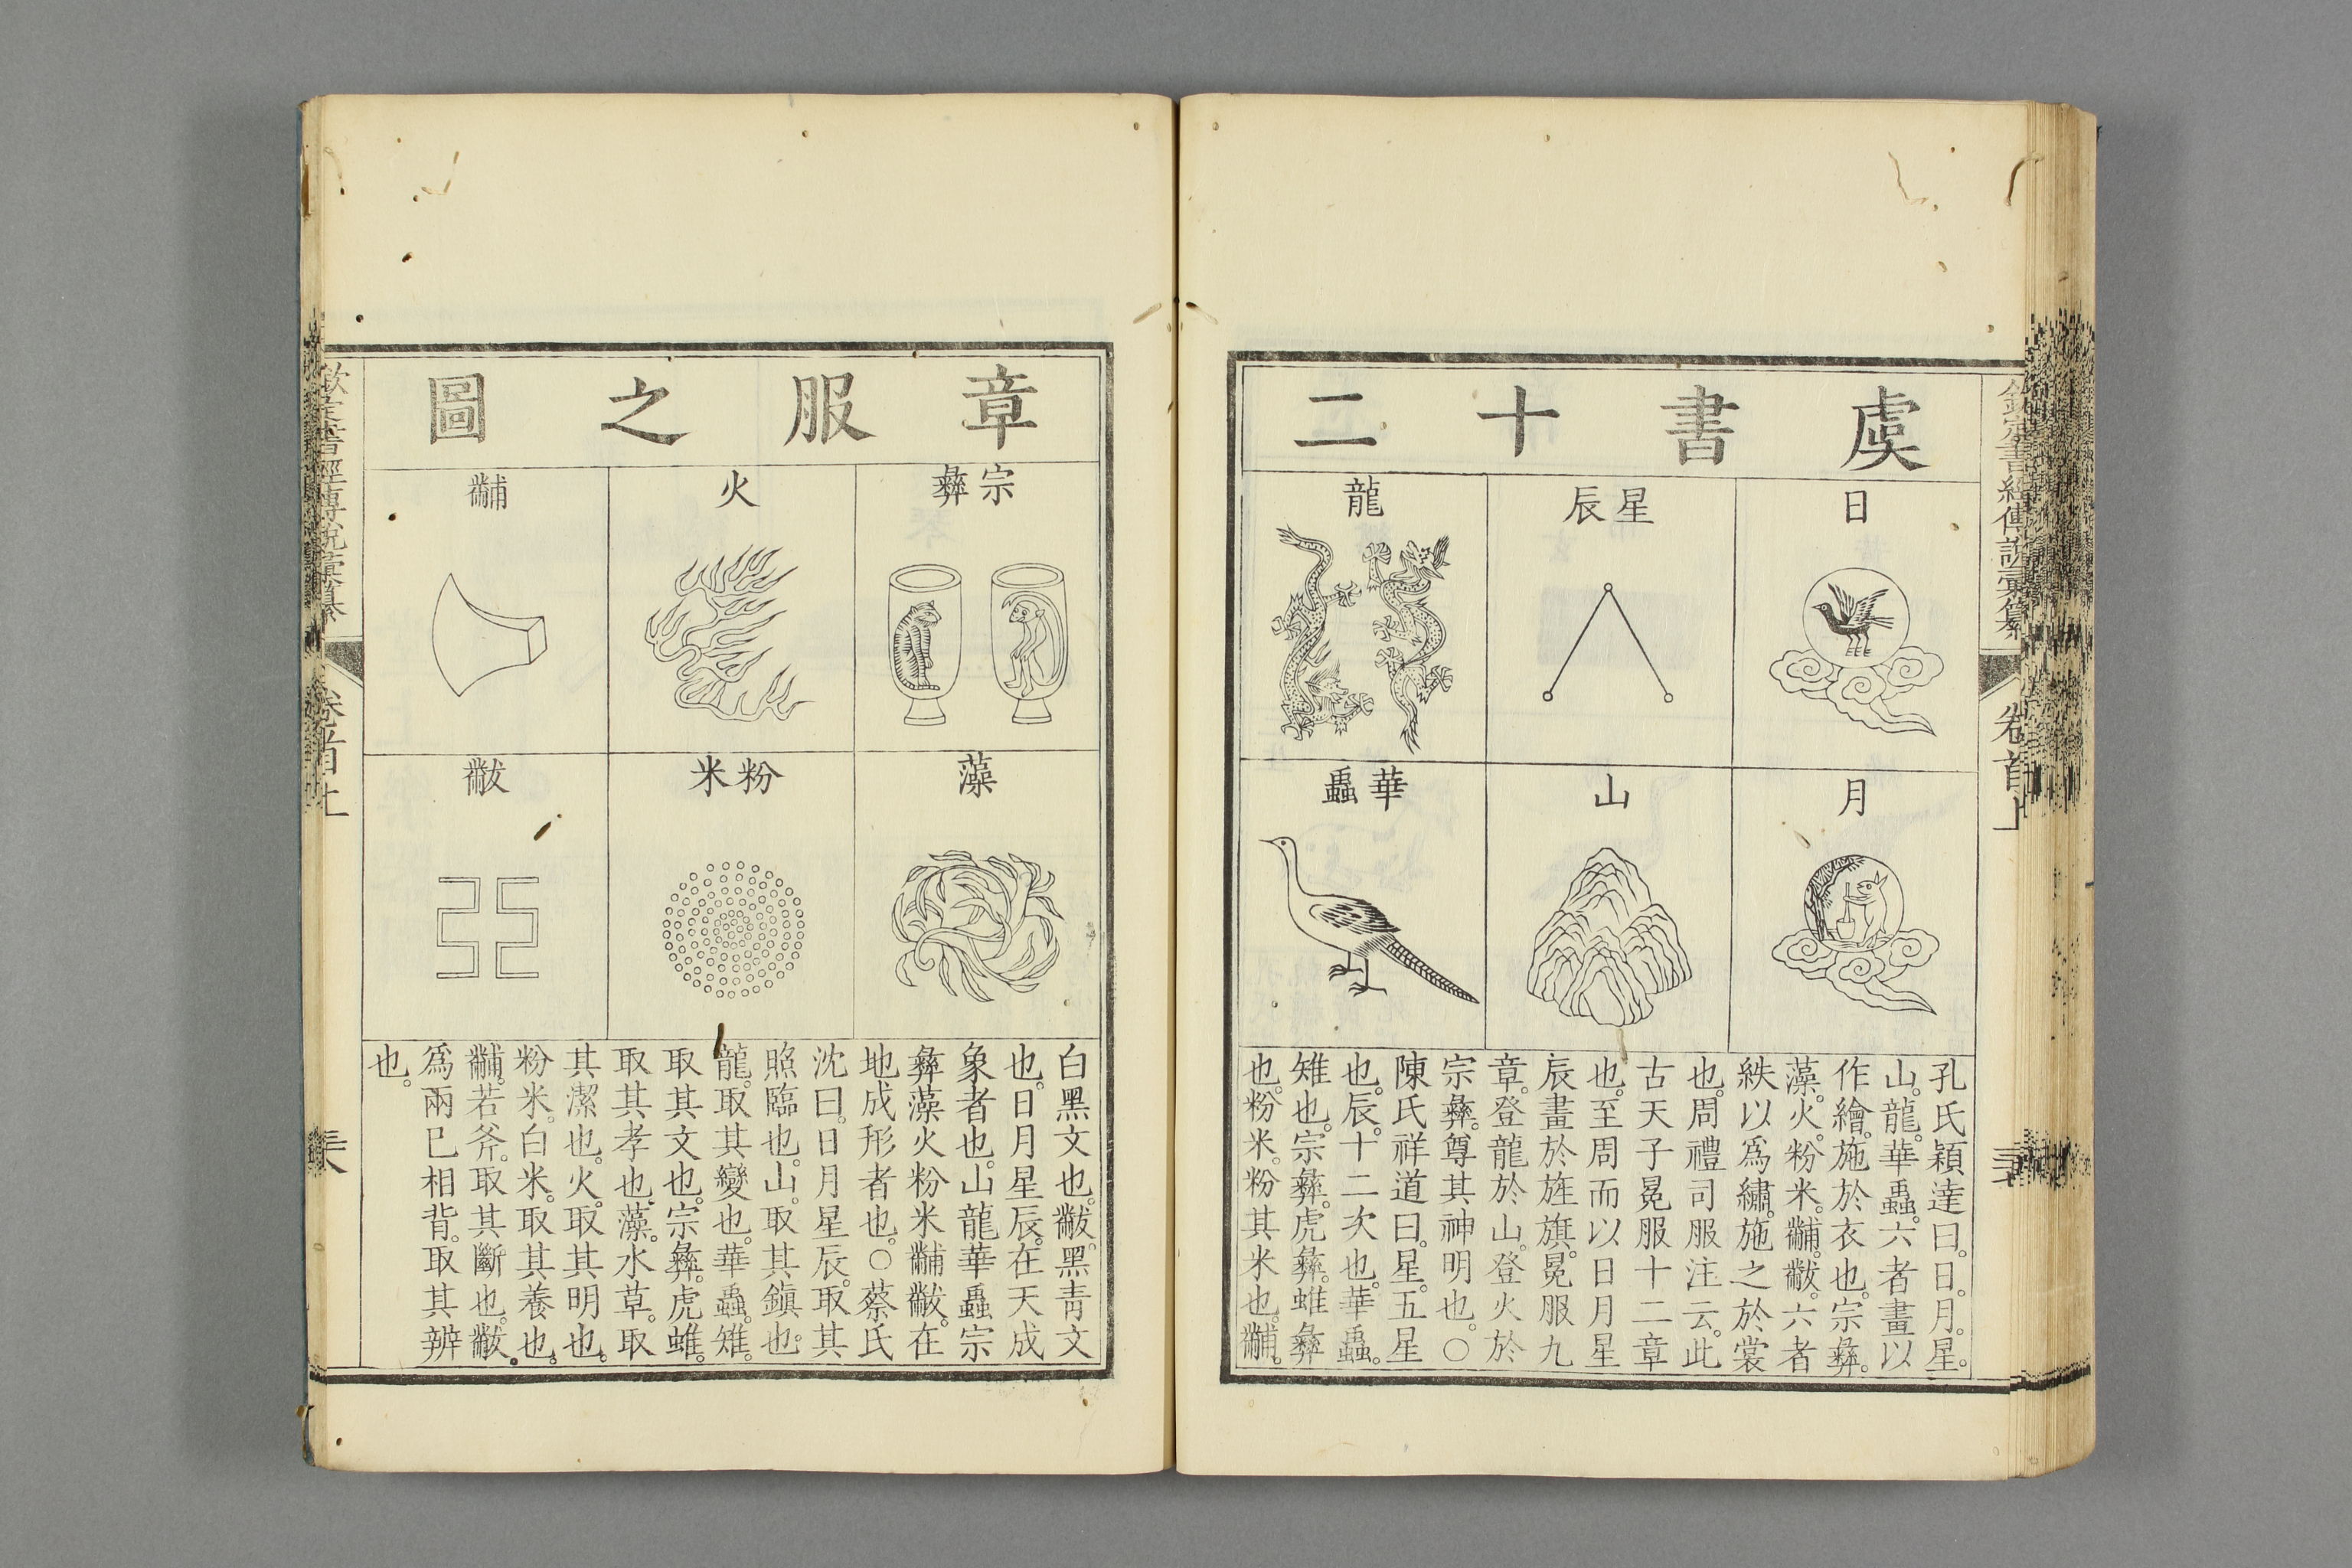 欽定書經傳說彙纂
卷首上
虞書十二
日
月
星辰
山
龍
華蟲
孔氏穎達曰。日。月。星。
山。龍。華蟲。六者畫以
作繪。施於衣也。宗彝。
藻。火。粉米。黼。黻。六者
紩以爲繡。施之於裳
也。周禮司服注云。此
古天子冕服十二章
也。至周而以日月星
辰畫於旌旗。冕服九
章。登龍於山。登火於
宗彝。尊其神明也。○
陳氏祥道曰。星。五星
也。辰。十二次也。華蟲。
雉也。宗彝。虎彝。蜼彝
也。粉米。粉其米也。黼。
章服之圖
宗彝
藻
火
粉米
黼
黻
白黑文也。黻。黑青文
也。日月星辰。在天成
象者也。山龍華蟲宗
彝藻火粉米黼黻。在
地成形者也。○蔡氏
沈曰。日月星辰。取其
照臨也。山。取其鎮也。
龍。取其變也。華蟲。雉。
取其文也。宗彝。虎蜼。
取其孝也。藻。水草。取
其潔也。火。取其明也。
粉米。白米。取其養也。
黼。若斧。取其斷也。黻。
爲兩已相背。取其辨
也。
欽定書經傳說彙纂
卷首上